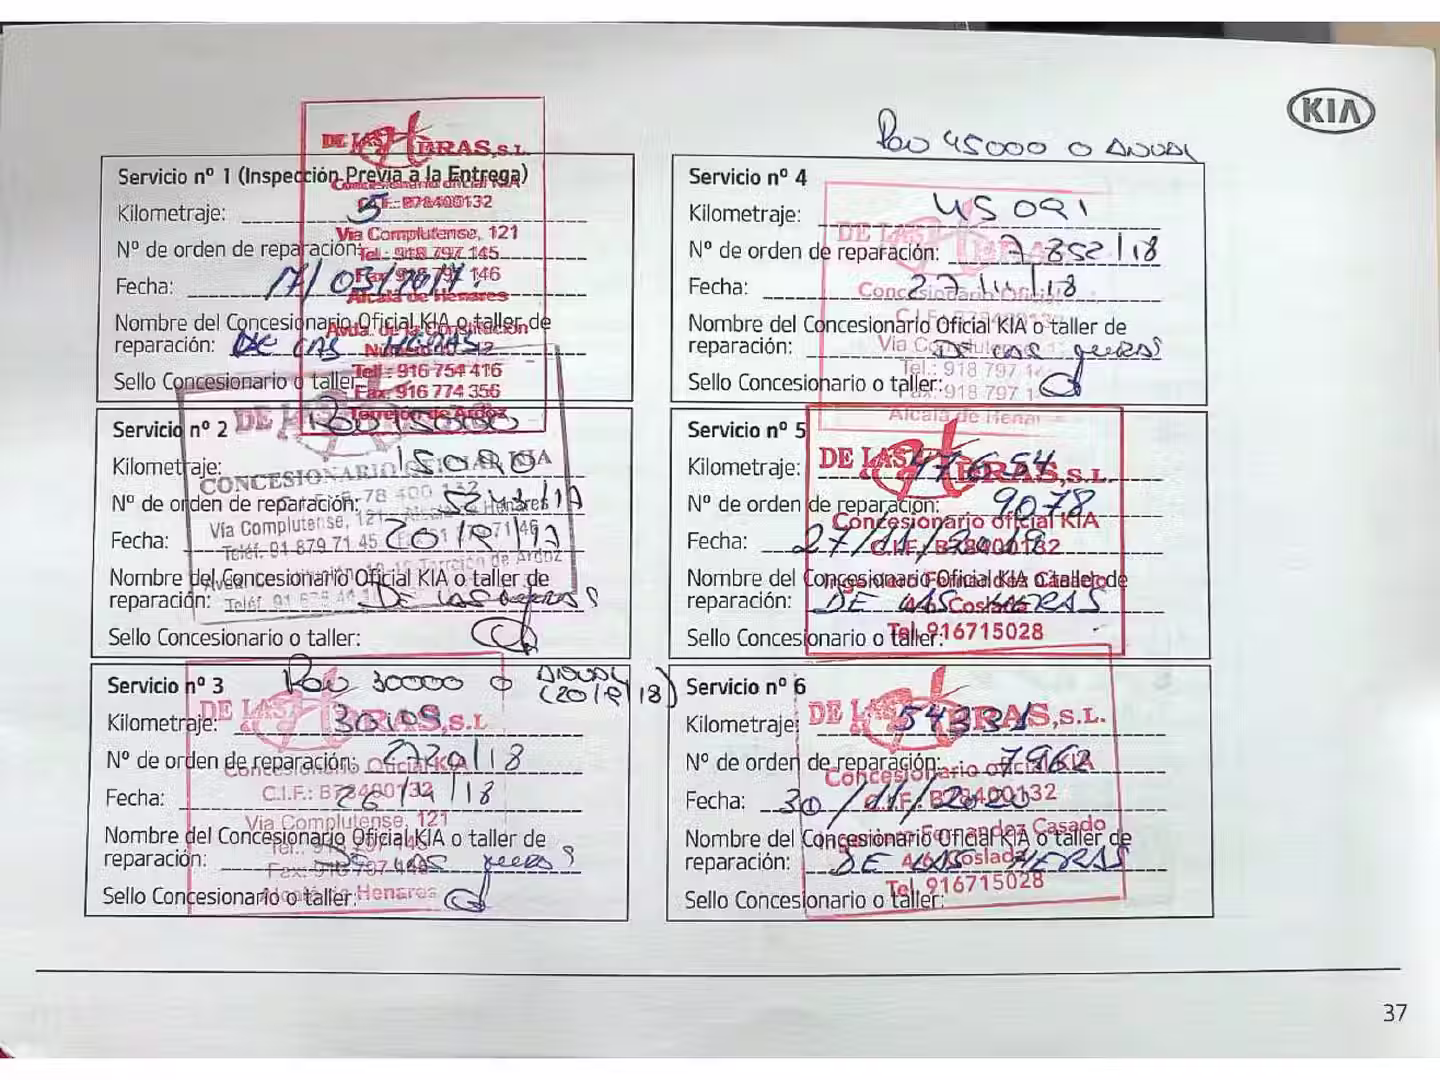 KIA
Rev 45000 o ANUAL
DE LAS HERAS, S.L.
Servicio nº 1 (Inspección Previa a la Entrega)
Concesionario oficial KIA
Kilometraje: 5
C.I.F.: B78400132
Vía Complutense, 121
Nº de orden de reparación:
Tel.: 918 797 145
Fecha: 17/03/2017
Fax: 918 797 146
Alcalá de Henares
Nombre del Concesionario Oficial KIA o taller de
Avda. de la Constitución
reparación: DE LAS HERAS
Tel.: 916 754 416
Sello Concesionario o taller:
Fax: 916 774 356
Torrejón de Ardoz
Servicio nº 2 Rev 15000
DE LAS
Kilometraje: 15090
CONCESIONARIO OFICIAL KIA
Nº de orden de reparación:
Vía Complutense, 121 - Alcalá de Henares
Fecha:
Teléf. 91 879 71 45
Torrejón de Ardoz
Nombre del Concesionario Oficial KIA o taller de
reparación: DE LAS HERAS
Sello Concesionario o taller:
Servicio nº 3 Rev 30000 o ANUAL
DE LAS HERAS, S.L.
Kilometraje:
Nº de orden de reparación: 2720/18
Concesionario Oficial KIA
Fecha: 26/4/18
C.I.F.: B78400132
Vía Complutense, 121
Nombre del Concesionario Oficial KIA o taller de
reparación: DE LAS HERAS
Sello Concesionario o taller:
Alcalá de Henares
Servicio nº 4
Kilometraje: 45091
DE LAS HERAS
Nº de orden de reparación: 7852/18
Fecha:
Concesionario Oficial
Nombre del Concesionario Oficial KIA o taller de
Vía Complutense
reparación: DE LAS HERAS
Tel.: 918 797
Sello Concesionario o taller:
Fax: 918 797
Alcalá de Henar
Servicio nº 5
DE LAS HERAS, S.L.
Kilometraje: 47654
Nº de orden de reparación: 9078
Concesionario oficial KIA
Fecha: 27/11/2019
C.I.F. B78400132
Nombre del Concesionario Oficial KIA o taller de
Ingeniero Fernandez Casado
reparación: DE LAS HERAS
4/6 Coslada
Sello Concesionario o taller:
Tel. 916715028
Servicio nº 6
DE LAS HERAS, S.L.
Kilometraje: 54331
Nº de orden de reparación: 7962
Concesionario oficial KIA
Fecha: 30/11/2020
C.I.F. B78400132
Nombre del Concesionario Oficial KIA o taller de
Ingeniero Fernandez Casado
reparación: DE LAS HERAS
4/6 Coslada
Sello Concesionario o taller:
Tel. 916715028
37